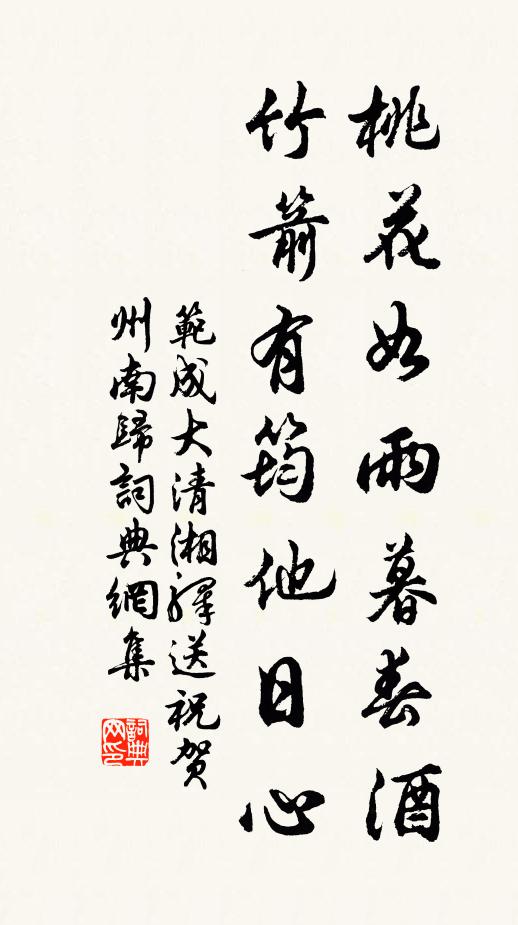 桃花如雨暮春酒
竹箭有筠他日心
範成大清湘驛送祝賀
州南歸詞典網集
詞典網印